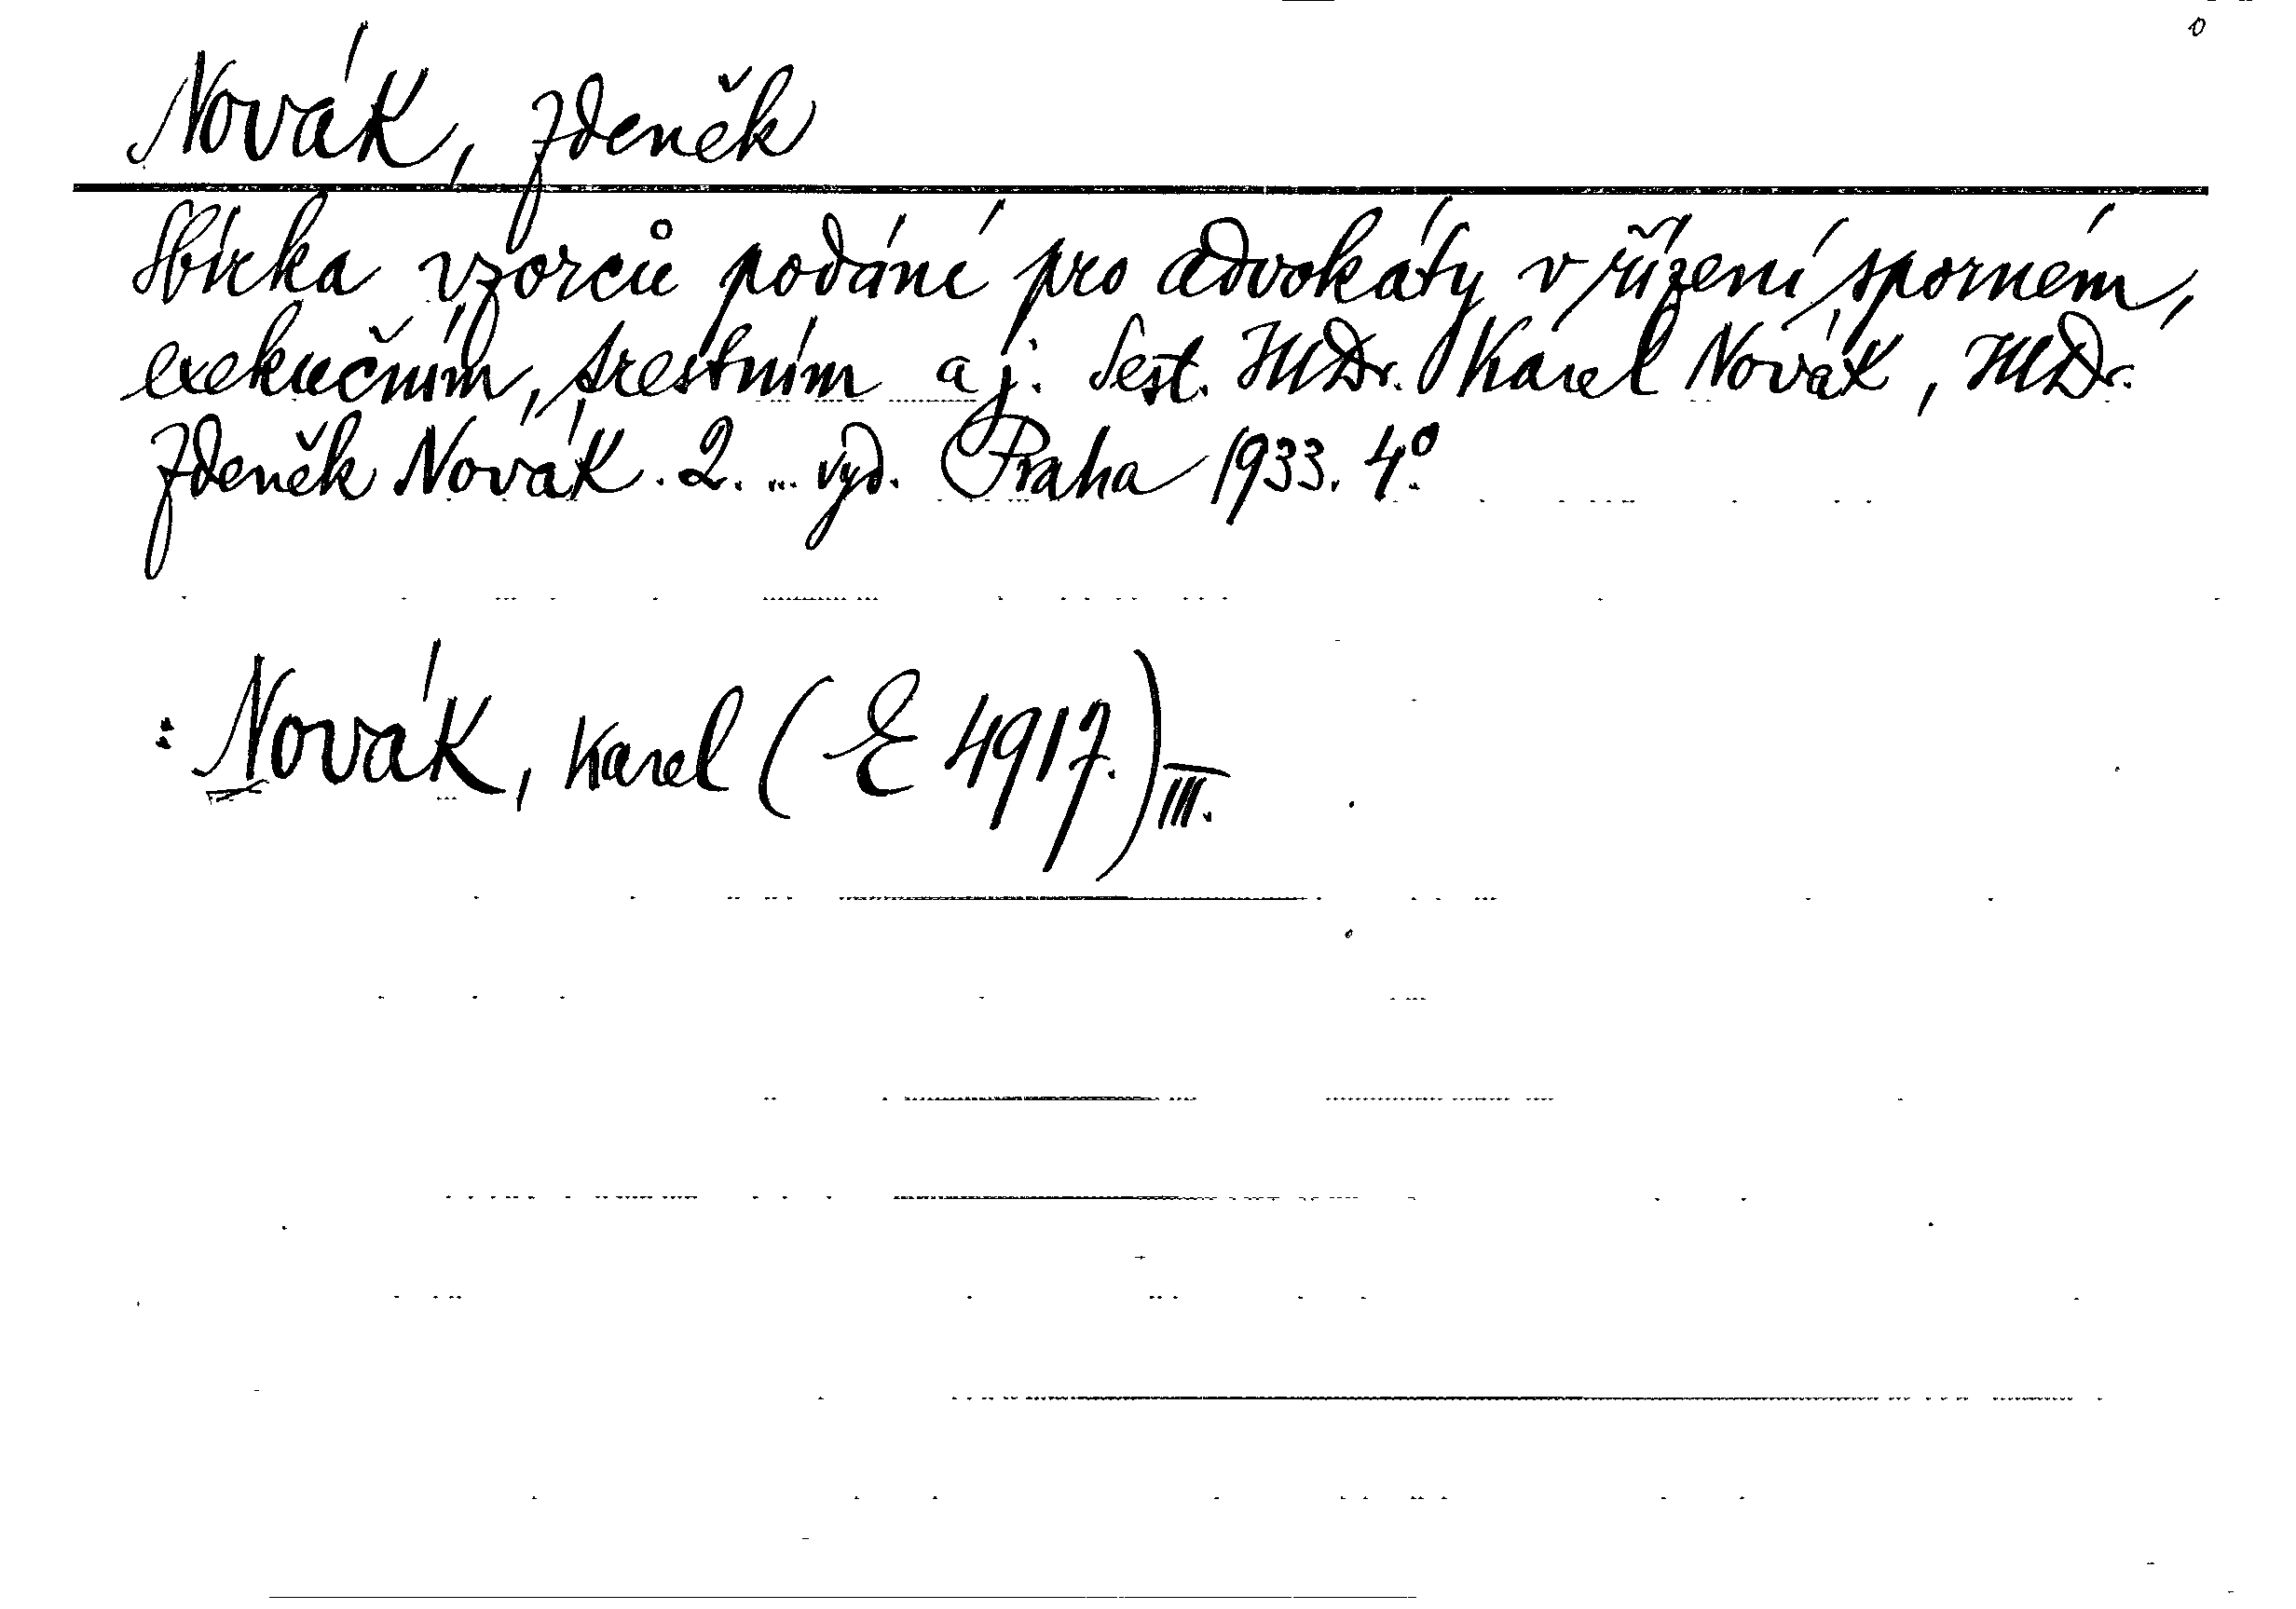 Novák, Zdeněk
Sbírka vzorců podání pro advokáty v řízení sporném,
exekučním, trestním a j. Sest. JUDr. Karel Novák, JUDr.
Zdeněk Novák. 2. ... vyd. Praha 1933. 4°.
: Novák, Karel (E 4917.) III.